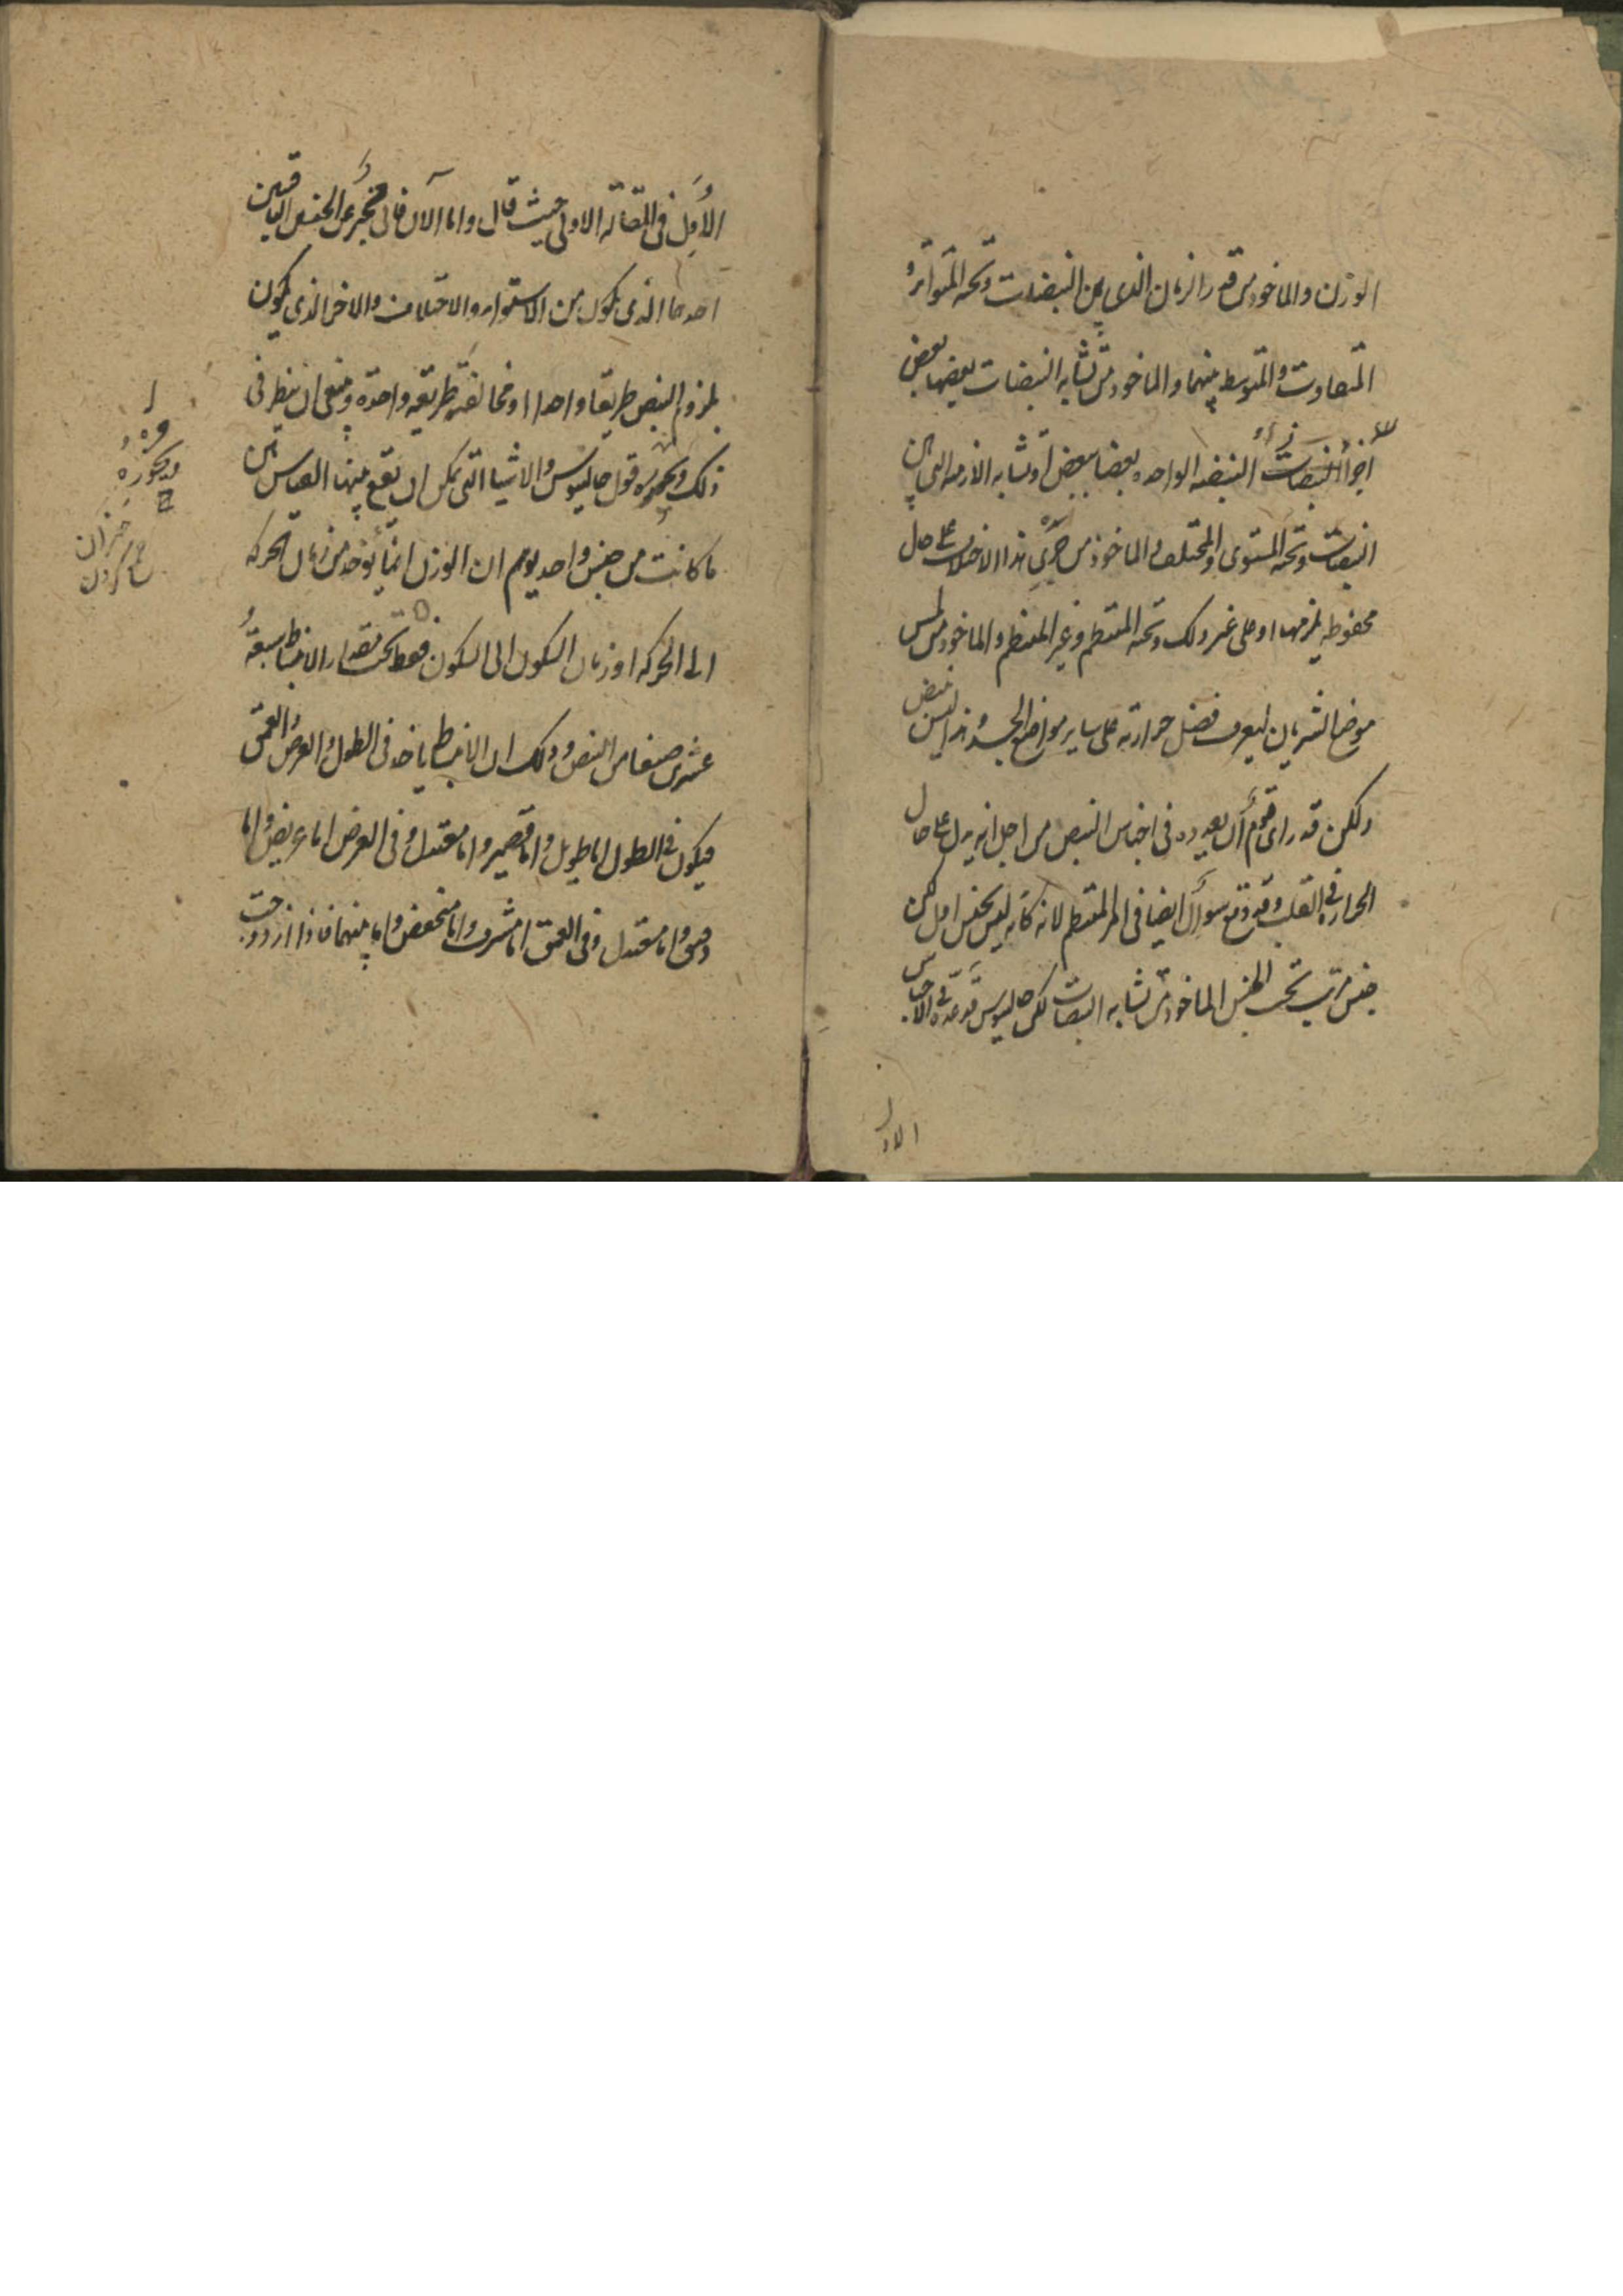 الوزن والماخوذ من قدر الزمان الذى بين النبضات وتحته المتواتر و
المتفاوت والمتوسط بينهما والماخوذ من تشابه النبضات بعضها بعض
اجزأ النبضه الواحده بعضا ببعض او تشابه الازمنه التى بين
النبضات وتحته المستوى والمختلف والماخوذ من جرى هذا الاختلاف على حال
محفوظه يلزمها او على غير ذلك وتحته المنتظم وغير المنتظم والماخوذ من لمس
موضع الشريان ليعرف فضل حرارته على ساير مواضع الجسد وهذا ليس نبض
ولكن قد راى قوم أن يعدوه فى اجناس النبض من اجل انه يدل على حال
الحراره فى القلب وقد وقع سوأل ايضا فى المنتظم لانه كانه ليس بجنس اول لكن
جنس مرتب تحت الجنس الماخوذ من تشابه النبضات لكن جالينوس قد عده فى الاجناس
الاول
الأول فى المقاله الاولى حيث قال واما الآن فانى مخبر عن الجنسين الباقيين
احدهما الذى يكون من الاستواء والاختلاف والاخر الذى يكون
بلزوم النبض طريقا واحدا او مخالفته طريقه واحده وينبغى ان ينظر فى
ذلك قول جالينوس والاشيا التى يمكن ان تقع بينها القياس هى
ما كانت من جنس واحد يوهم ان الوزن انما يوخذ من زمان الحركه
الى الحركه او زمان السكون الى السكون فقط تحت مقدار الانبساط سبعة
عشرين صنفا من النبض وذلك ان الانبساط ياخذ فى الطول والعرض والعمق
فيكون فى الطول اما طويل واما قصير واما معتدل وفى العرض اما عريض واما
دقيق واما معتدل وفى العمق اما مشرف واما منخفض واما بينهما فاذا ازدوجت